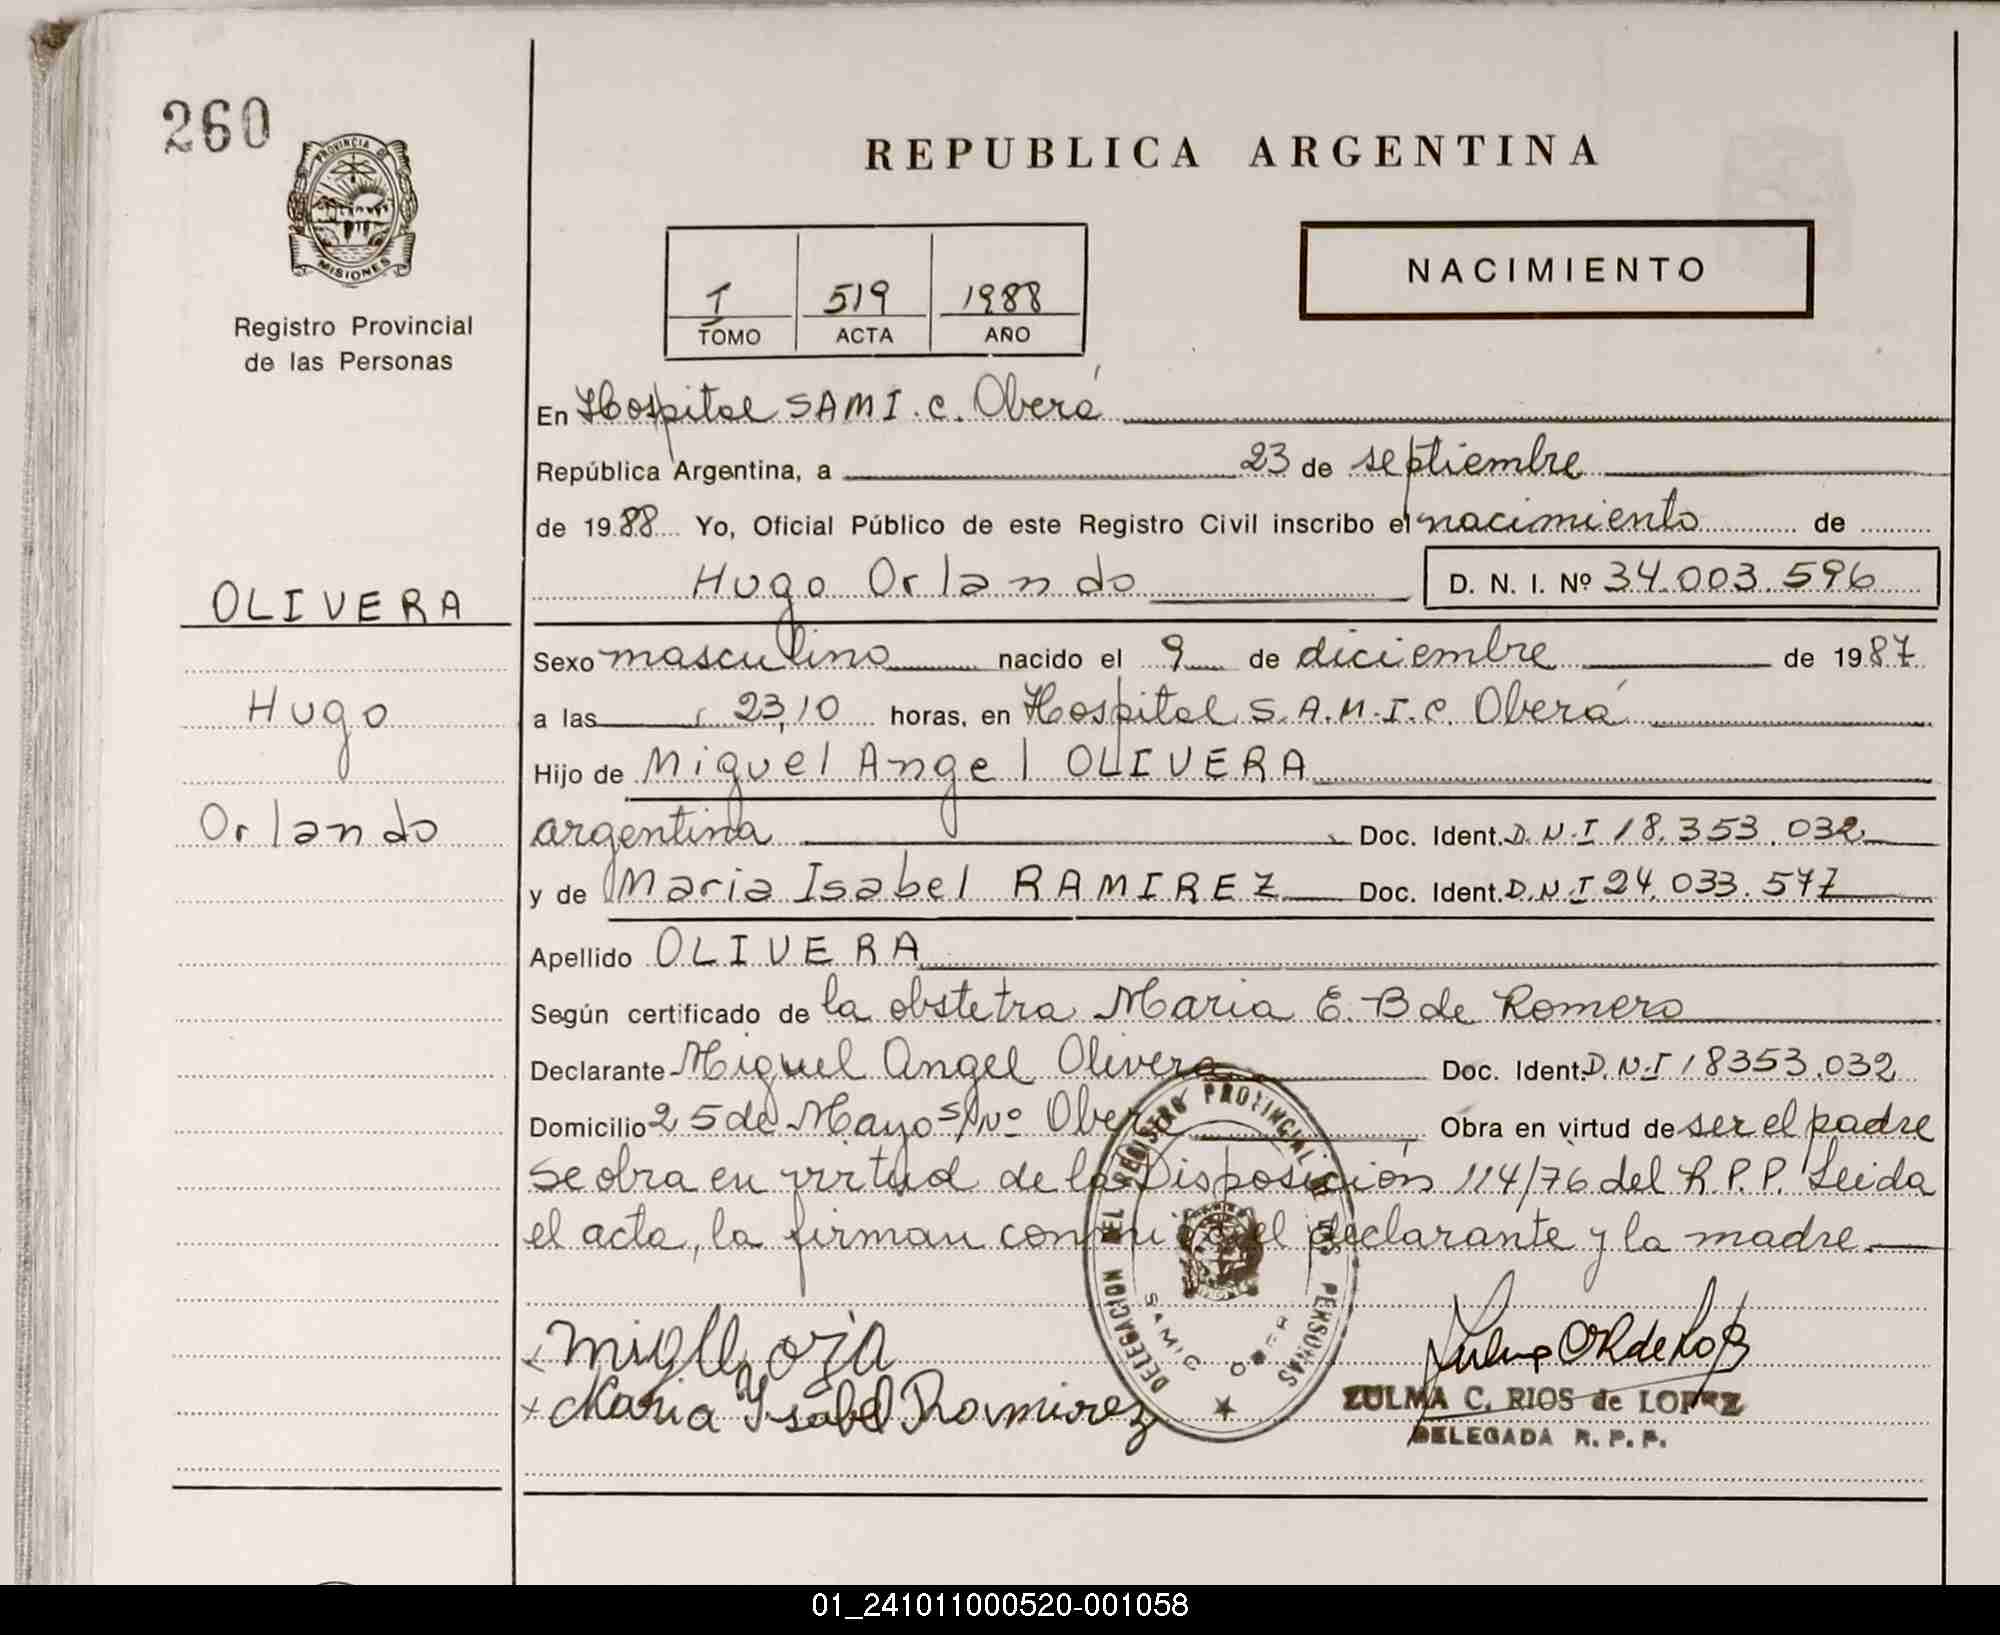 260
PROVINCIA DE
MISIONES
Registro Provincial
de las Personas
OLIVERA
Hugo
Orlando
REPUBLICA ARGENTINA
NACIMIENTO
1 519 1988
TOMO ACTA AÑO
En Hospital SAMI.C. Oberá
República Argentina, a 23 de septiembre
de 1988 Yo, Oficial Público de este Registro Civil inscribo el nacimiento de
Hugo Orlando D. N. I. Nº 34.003.596
Sexo masculino nacido el 9 de diciembre de 1987
a las 23,10 horas, en Hospital S.A.M.I.C. Oberá
Hijo de Miguel Angel OLIVERA
argentina Doc. Ident. D.N.I 18.353.032
y de Maria Isabel RAMIREZ Doc. Ident. D.N.I 24.033.577
Apellido OLIVERA
Según certificado de la obstetra Maria E. B de Romero
Declarante Miguel Angel Olivera Doc. Ident. D.N.I 18353.032
Domicilio 25 de Mayo s/Nº Oberá Obra en virtud de ser el padre
se obra en virtud de la Disposición 114/76 del R.P.P. Leida
el acta, la firman conmigo el declarante y la madre.
DELEGACION DEL REGISTRO PROVINCIAL DE LAS PERSONAS
SAMIC OBERA
Maria Ysabel Ramirez
ZULMA C. RIOS de LOPEZ
DELEGADA R. P. P.
01_241011000520-001058